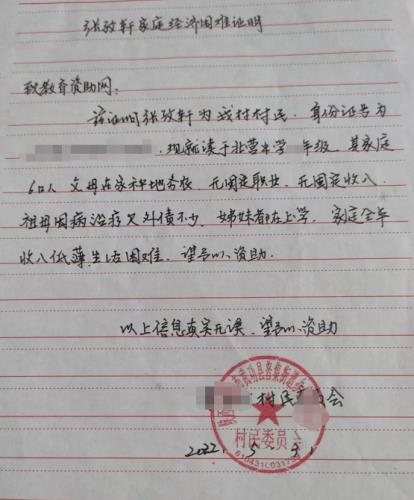 张致轩家庭经济困难证明
致教育资助网:
兹证明张致轩为我村村民,身份证号为
,现就读于北营小学 年级,其家庭
6口人,父母在家种地务农,无固定职业,无固定收入,
祖母因病治疗欠外债不少,姊妹都在上学,家庭全年
收入低薄,生活困难,望予以资助.
以上信息真实无误,望予以资助
村民 会
武功县 街道
村民委员会
2022. 5